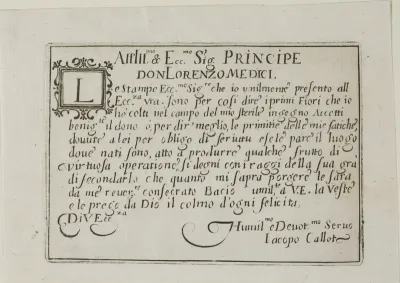 All Ill.mo & Ecc.mo Sig. PRINCIPE
DON LORENZO MEDICI.
Le Stampe Ecc.mo Sig.re che io umilmente presento all
Ecc.za vra. sono per cosi dire i primi Fiori che io
hò colti nel campo del mio sterile ingegno Accetti
benig.te il dono ò, per dir meglio, le primitie delle mie fatiche,
douute a lei per obligo di seruitu e se le pare il luogo
doue nati sono, atto à produrre qualche frutto di
uirtuosa operatione, si degni con i raggi della sua gra
di secondarlo che quanto mi saprà porgere le sarà
da me reuer.te consecrato Bacio umil.te a V.E. la Veste
e le prego da Dio il colmo d'ogni felicità.
Di V. Ecc.za
Humil.mo e Deuot.mo Seruo
Iacopo Callot.